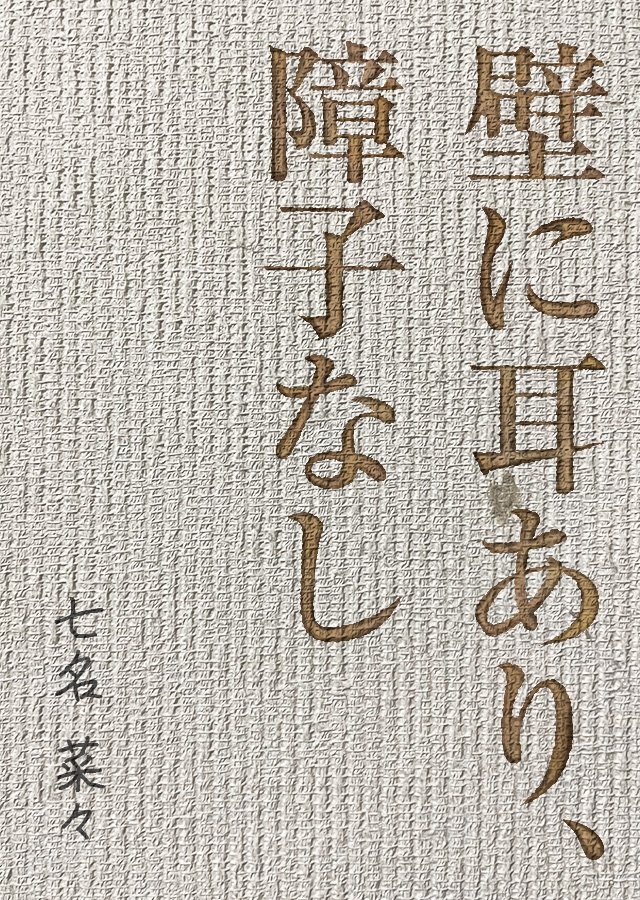 壁に耳あり、
障子なし
七名 菜々